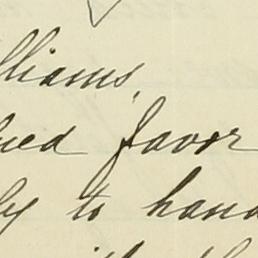 lliams,
ued favor
ly to hand